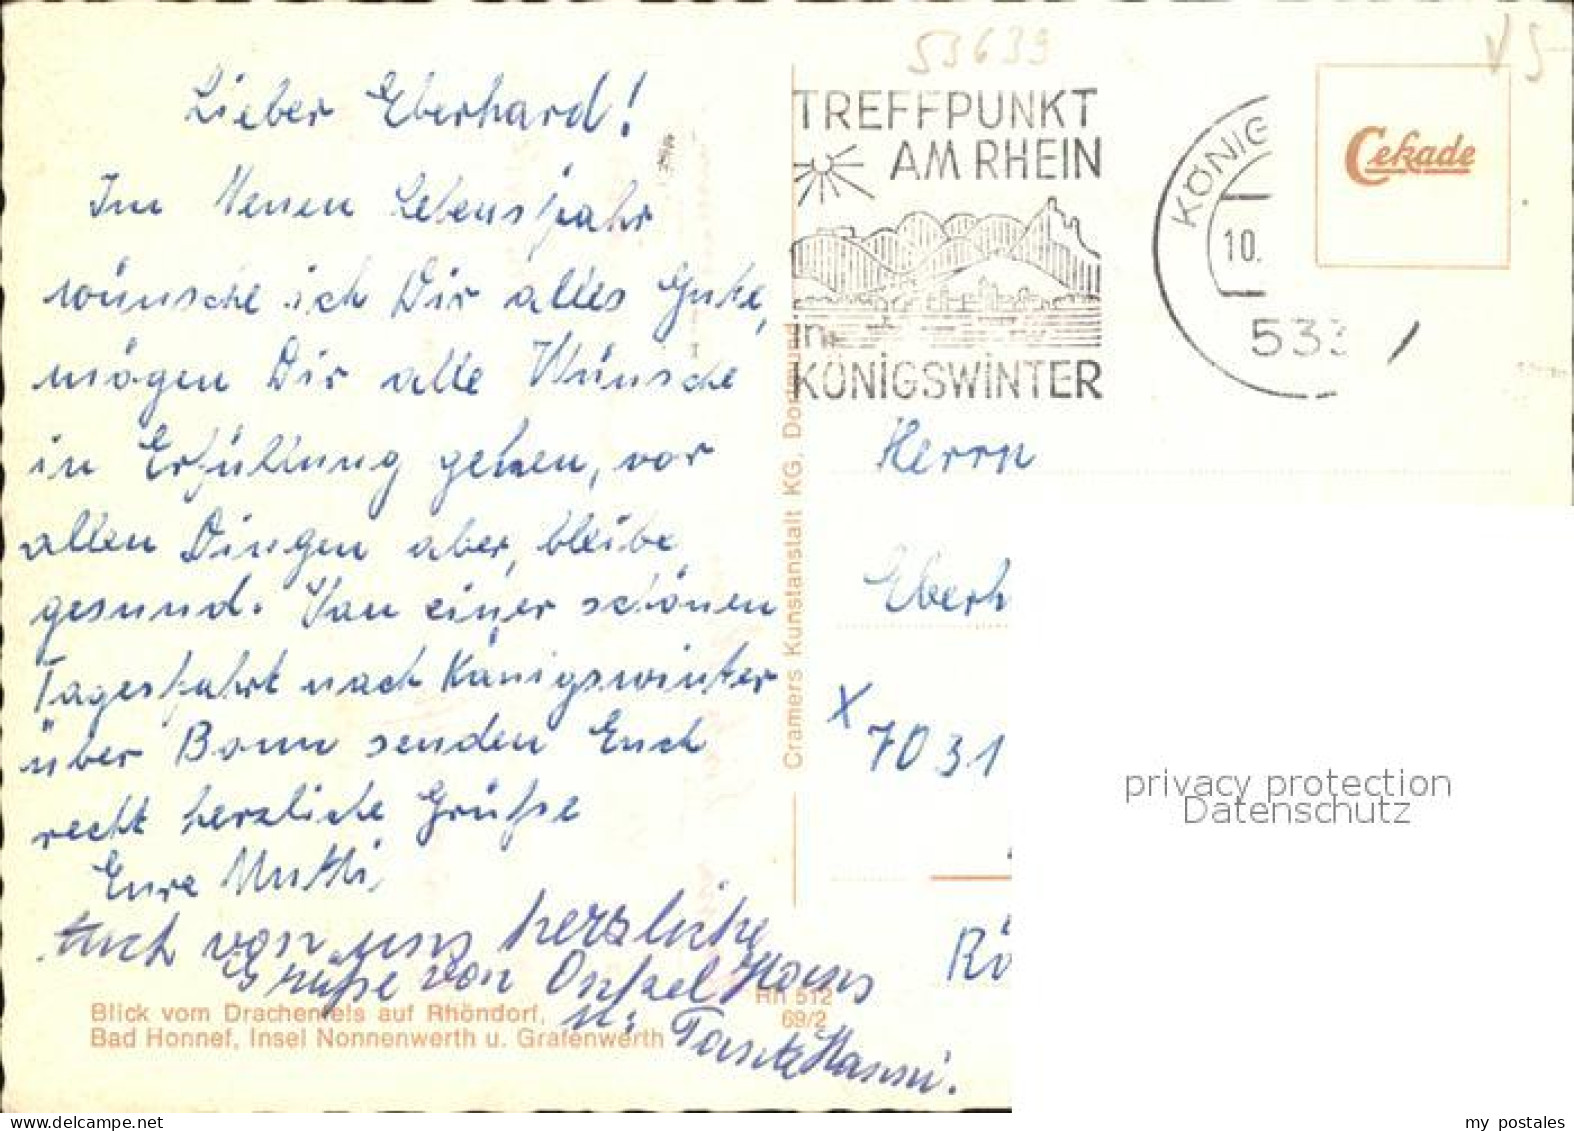 53639
V5
Lieber Eberhard!
Im Neuen Lebensjahr
wünsche ich Dir alles Gute,
mögen Dir alle Wünsche
in Erfüllung gehen, vor
allen Dingen aber, bleibe
gesund. Von einer schönen
Tagesfahrt nach Königswinter
über Bonn senden Euch
recht herzliche Grüße
Eure Mutti
Auch von uns herzliche
Grüße von Onkel Hans
u. Tante Hanni.
Blick vom Drachenfels auf Rhöndorf,
Bad Honnef, Insel Nonnenwerth u. Grafenwerth
Rh 512
69/2
Cramers Kunstanstalt KG, Dortmund
TREFFPUNKT
AM RHEIN
in
KÖNIGSWINTER
KÖNIG
10.
533
Cekade
Herrn
Eberh
x 7031
Rö
privacy protection
Datenschutz
my postales